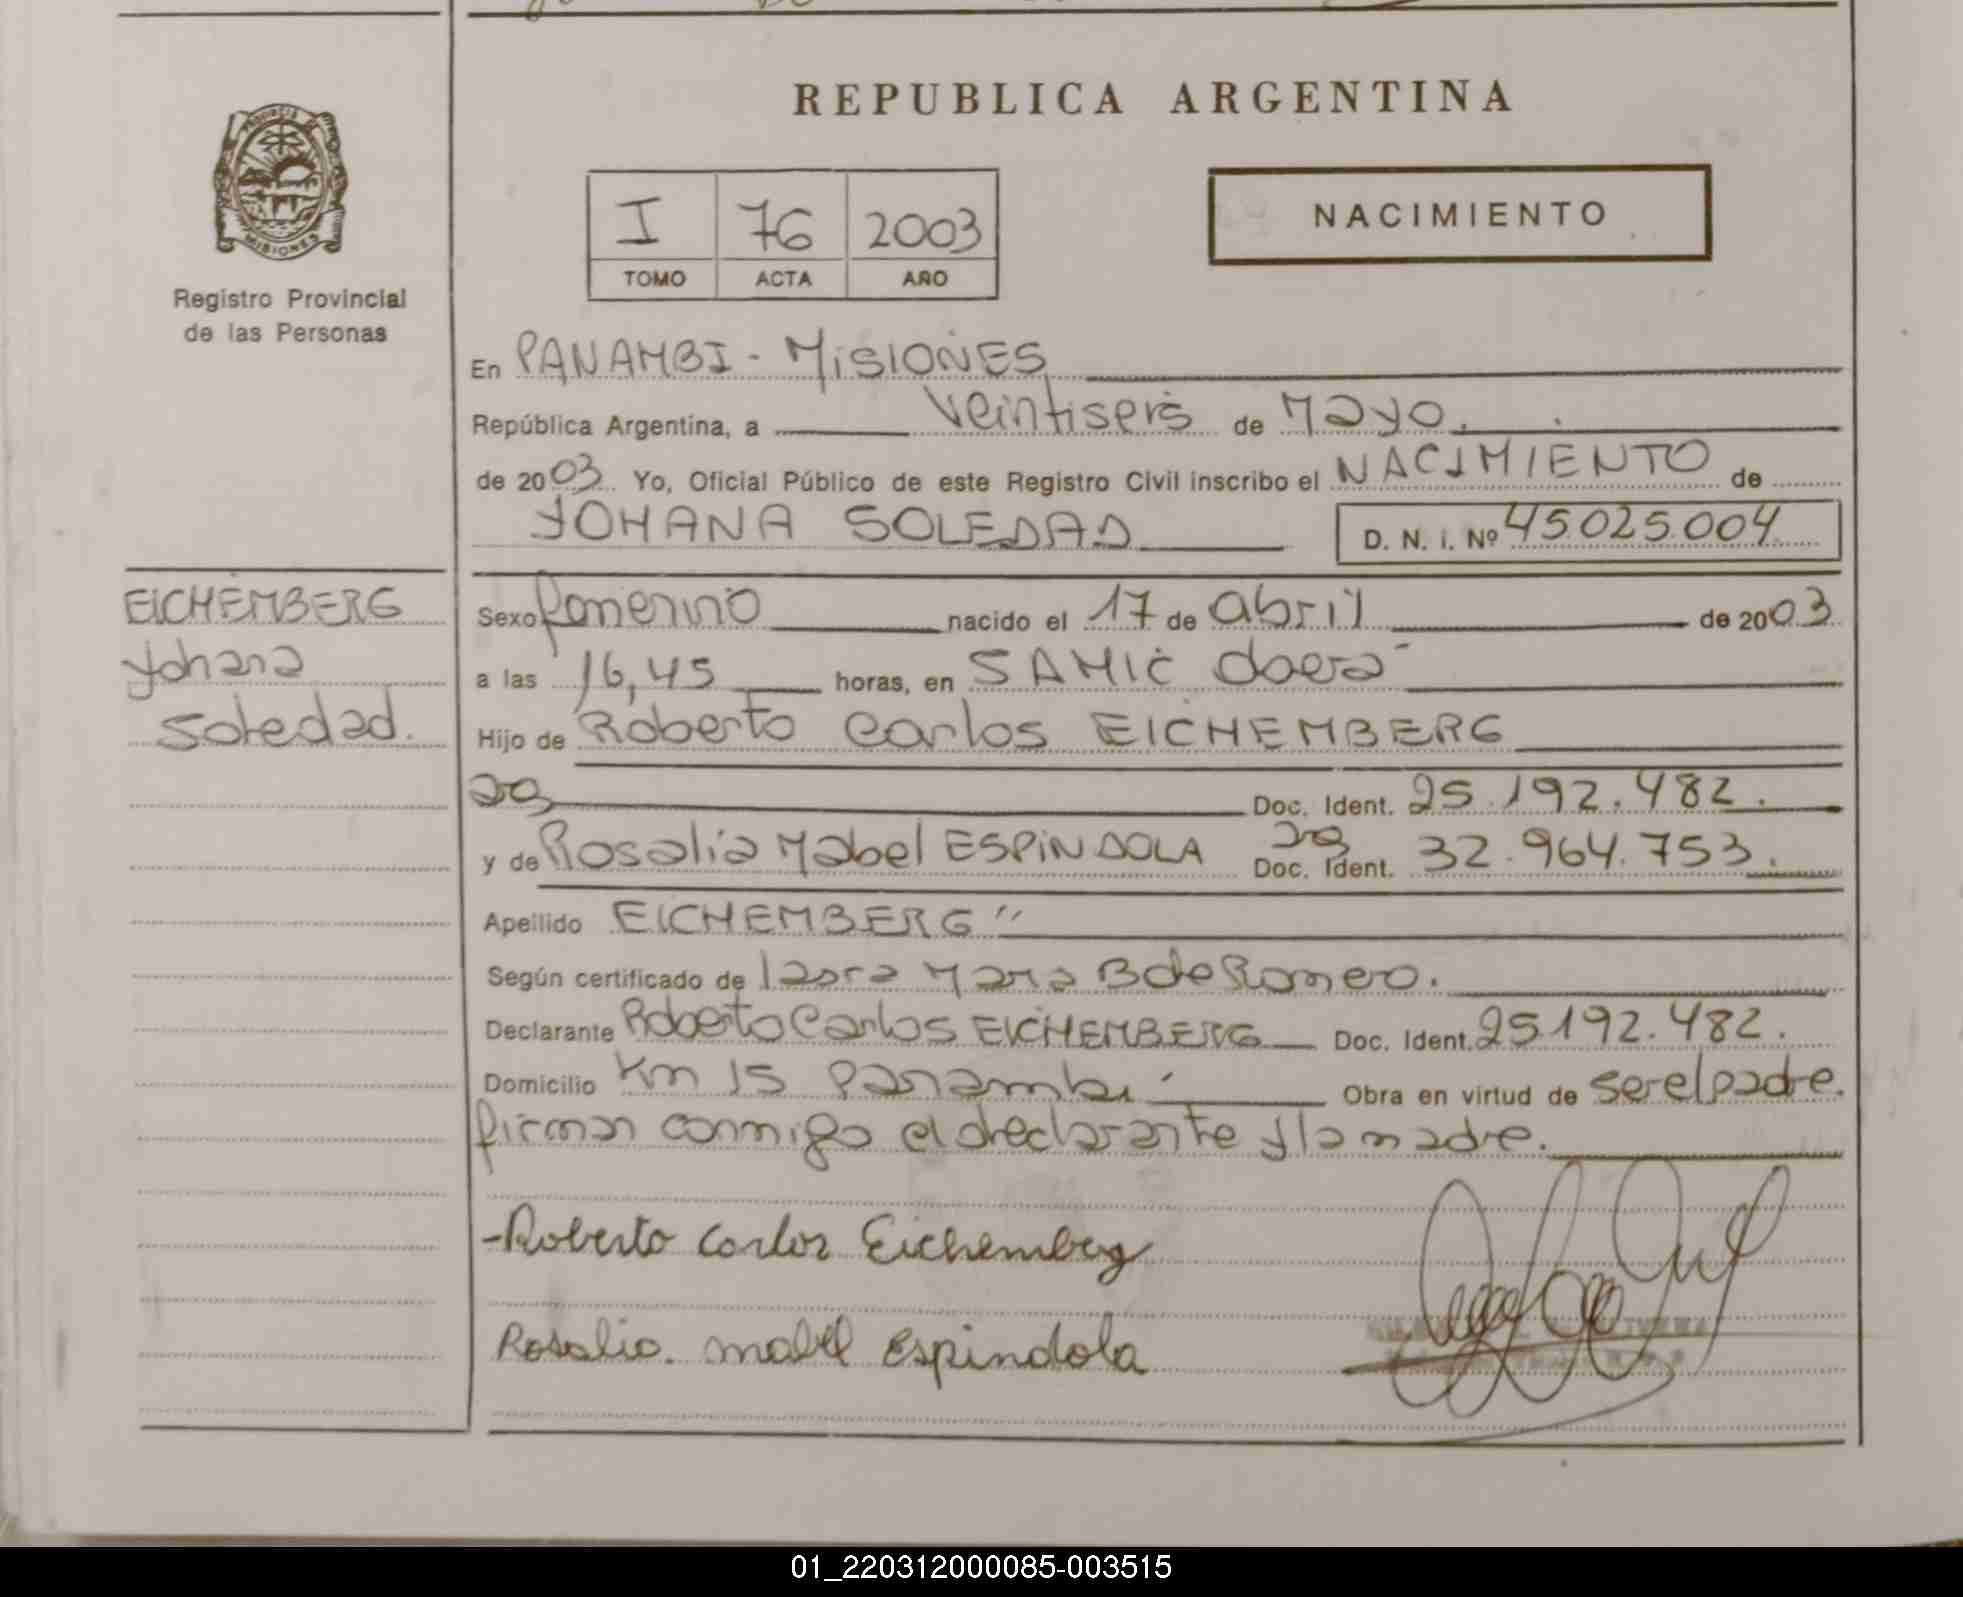 REPUBLICA ARGENTINA
PROVINCIA DE
MISIONES
Registro Provincial
de las Personas
I 76 2003
TOMO ACTA AÑO
NACIMIENTO
En PANAMBI - MISIONES
República Argentina, a veintiseis de Mayo.
de 2003. Yo, Oficial Público de este Registro Civil inscribo el NACIMIENTO de
YOHANA SOLEDAD
D. N. I. Nº 45.025.004
EICHEMBERG
Yohana
Soledad.
Sexo femenino nacido el 17 de abril de 2003
a las 16,45 horas, en SAMIC
Hijo de Roberto Carlos EICHEMBERG
Doc. Ident. 25.192.482.
y de Rosalia Mabel ESPINDOLA Doc. Ident. 32.964.753.
Apellido EICHEMBERG"
Según certificado de Maria B de Romero.
Declarante Roberto Carlos EICHEMBERG Doc. Ident. 25192.482.
Domicilio Km 15 Panambi Obra en virtud de ser el padre.
firman conmigo el declarante y la madre.
-Roberto Carlos Eichemberg
Rosalia. mabel Espindola
01_220312000085-003515